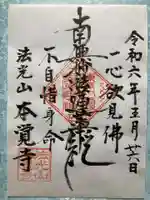 令和六年五月廿八日
一心欲見佛
南無妙法蓮華経
不自惜身命
法光山 本覚寺